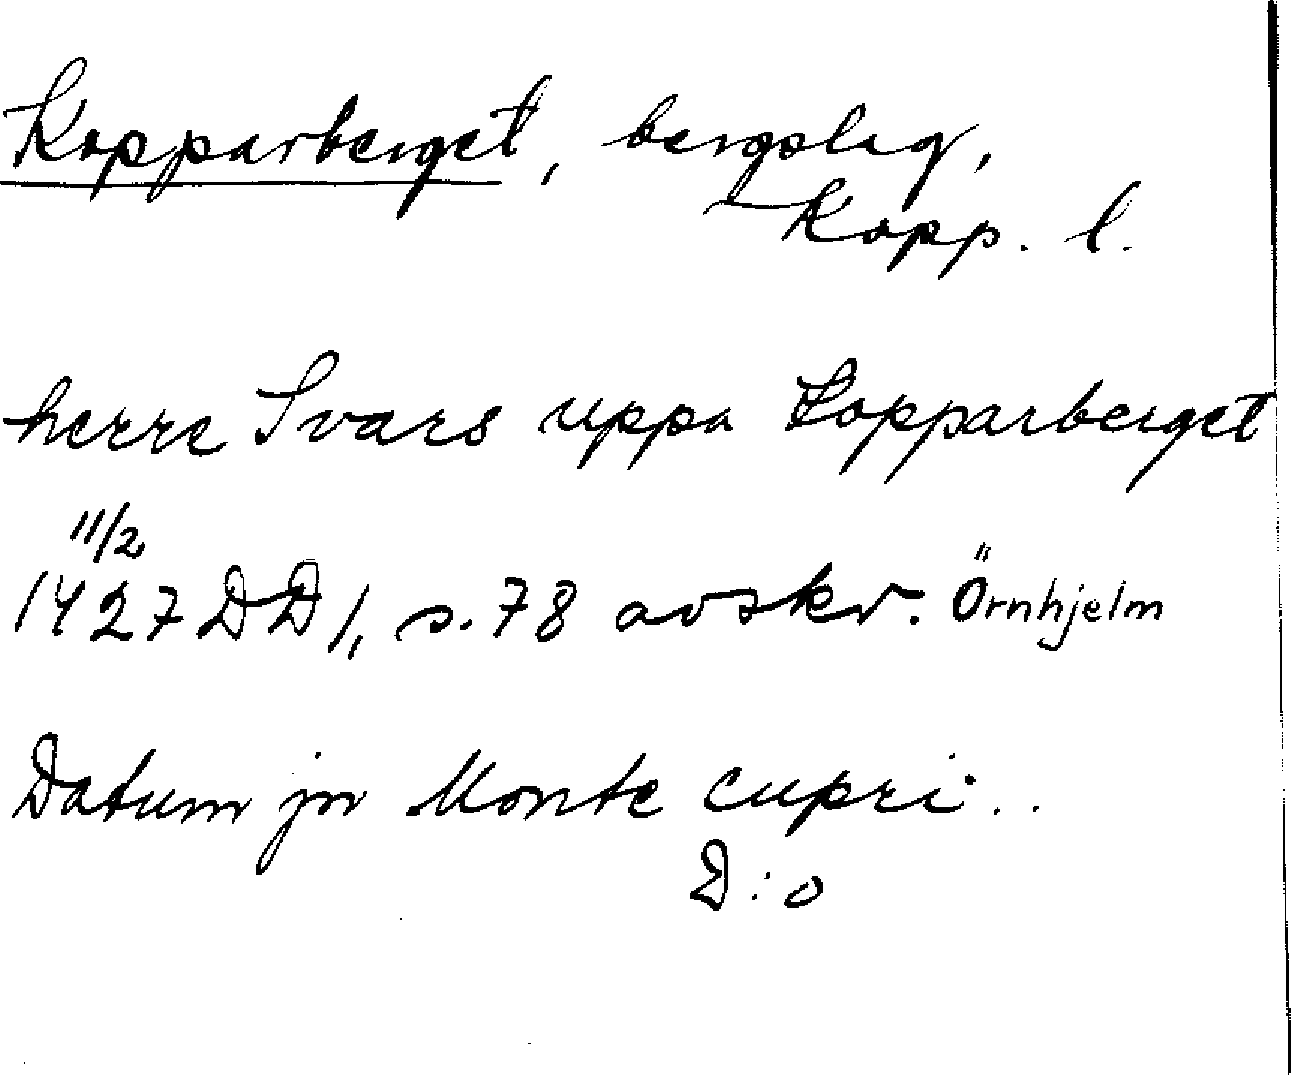 Kopparberget, bergslag,
Kopp. l.
herre Ivars uppa Kopparberget
11/2
1427 DD 1, s. 78 avskr. Örnhjelm
Datum jn Monte cupri...
D:o